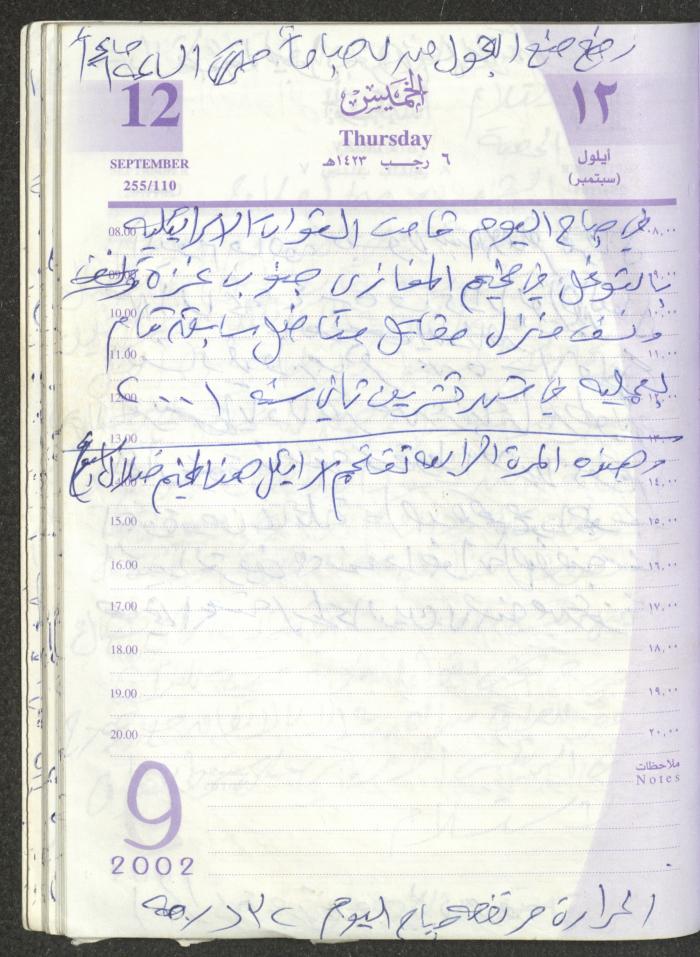 رفع منع التجول صباحاً حتى الساعة
12
الخميس
١٢
Thursday
SEPTEMBER
٦ رجب ١٤٢٣هـ
أيلول
255/110
(سبتمبر)
في صباح اليوم قامت القوات الاسرائيلية
08.00
٨,٠٠
بالتوغل في مخيم المغازي جنوب غزة
09.00
٩,٠٠
10.00
١٠,٠٠
ونسف منزل مقاتل مناضل سابقة قام
11.00
١١,٠٠
بعملية في شهر تشرين ثاني سنة ٢٠٠١
12.00
١٢,٠٠
13.00
١٣,٠٠
وهذه المرة الرابعة تقتحم اسرائيل هذا المخيم خلال
١٤,٠٠
15.00
١٥,٠٠
16.00
١٦,٠٠
17.00
١٧,٠٠
18.00
١٨,٠٠
19.00
١٩,٠٠
20.00
٢٠,٠٠
ملاحظات
Notes
9
2002
الحرارة مرتفعة صباح اليوم ٣٢ درجة